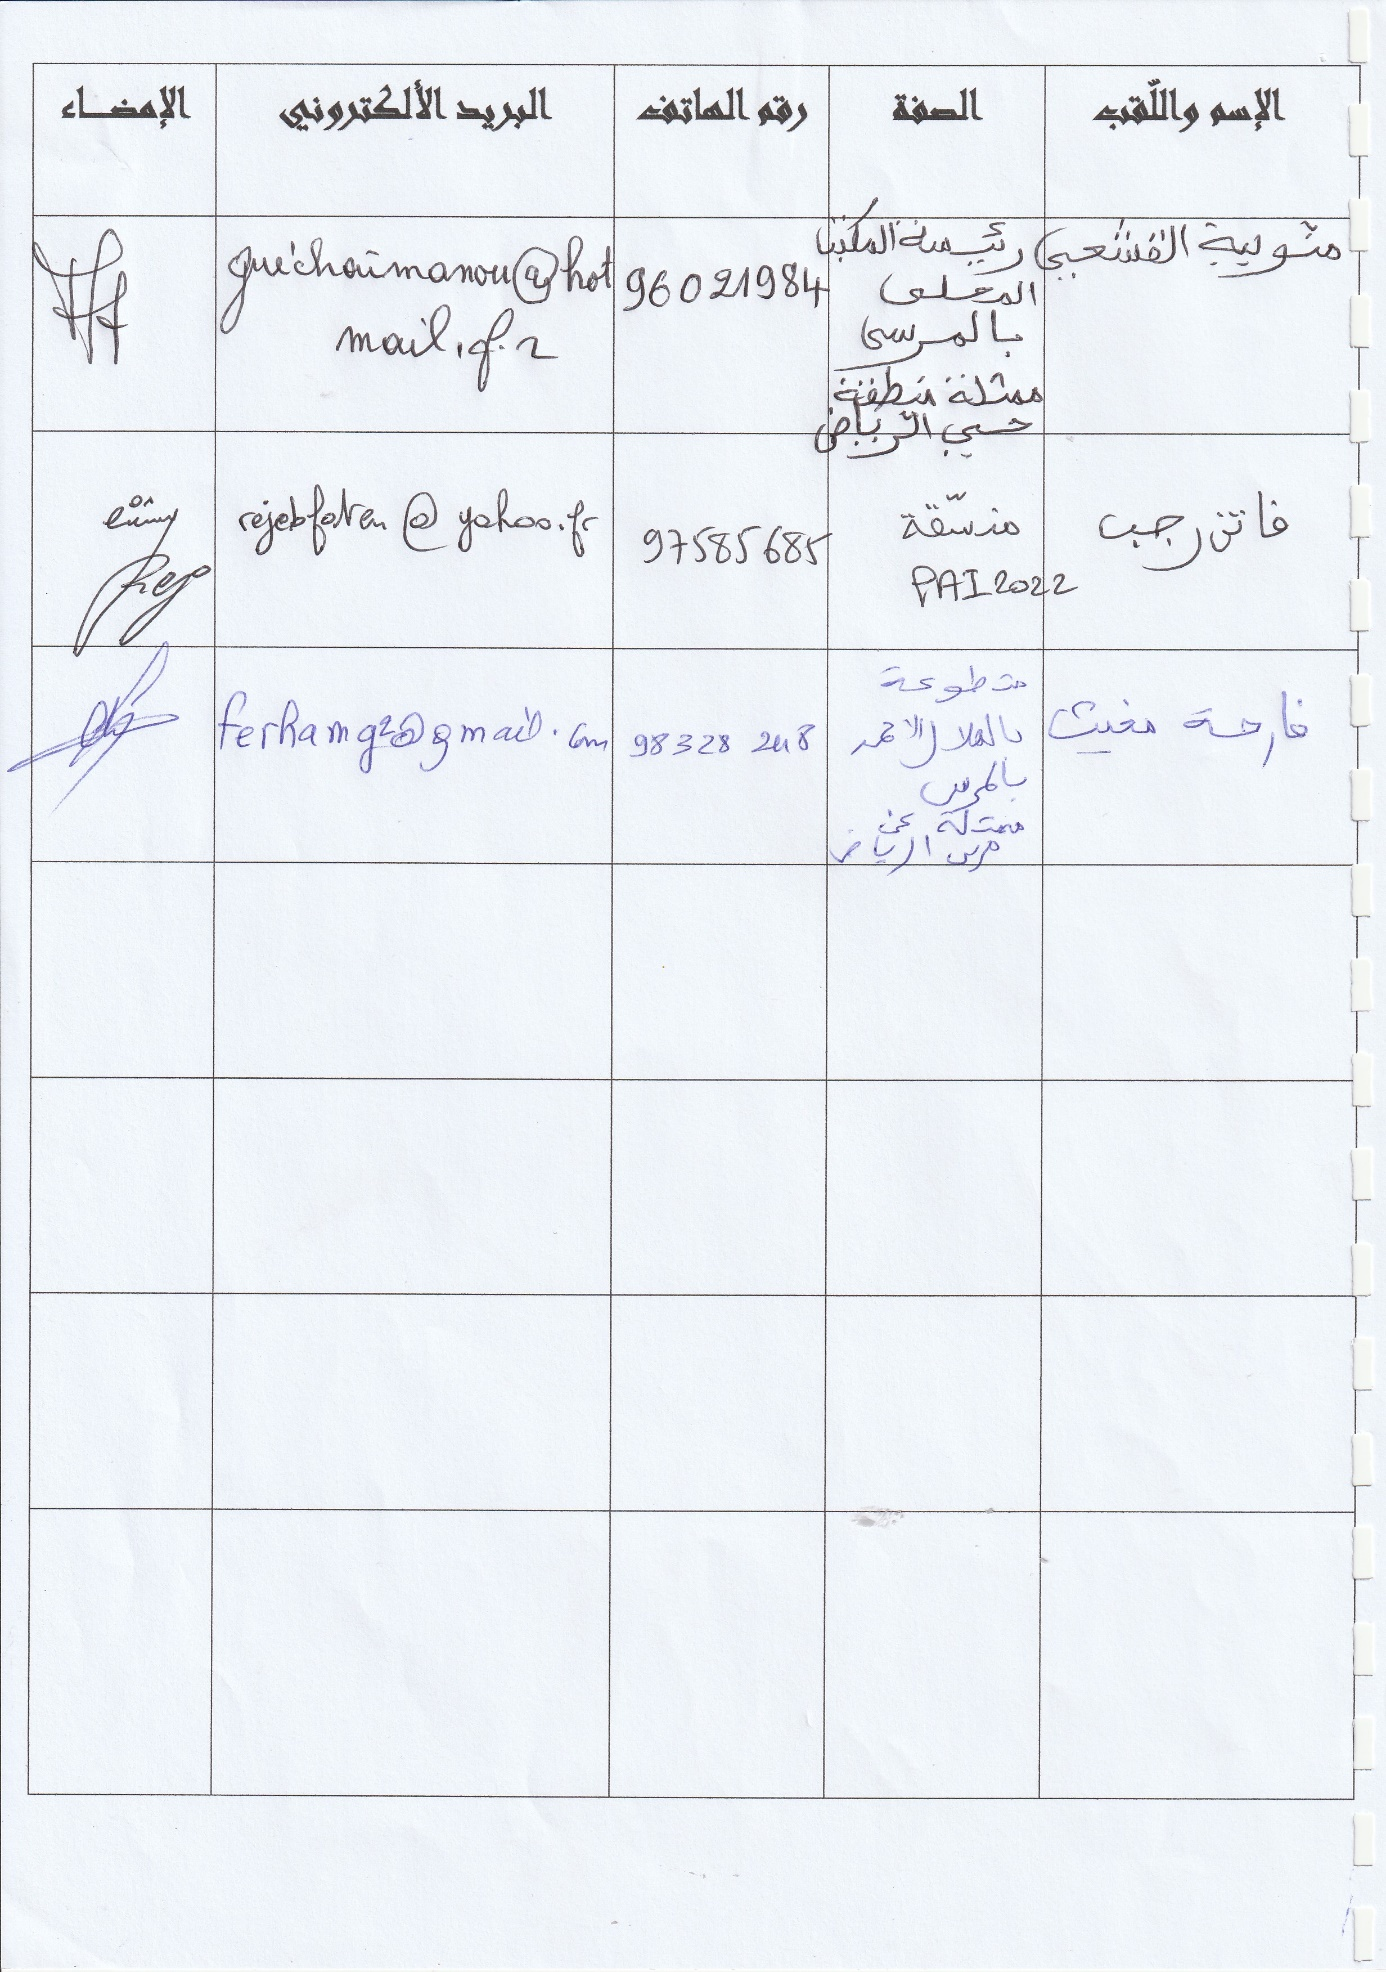 الإسم واللّقب الصفة رقم الهاتف البريد الألكتروني الإمضاء
منوبية القشعيبي
رئيسة المكتب
المحلي
بالمرسى
ممثلة منطقة
حي الرياض
96021984
guéchaimanou@hot
mail.f.r
فاتن رجب
منسّقة
PAI2022
97585685
rejebfaten@yahoo.fr
فارحة مغيث
متطوعة
بالهلال الاحمر
بالمرسى
ممثلة عن
مرسى الرياض
98328 248
ferhamg2@gmail.com